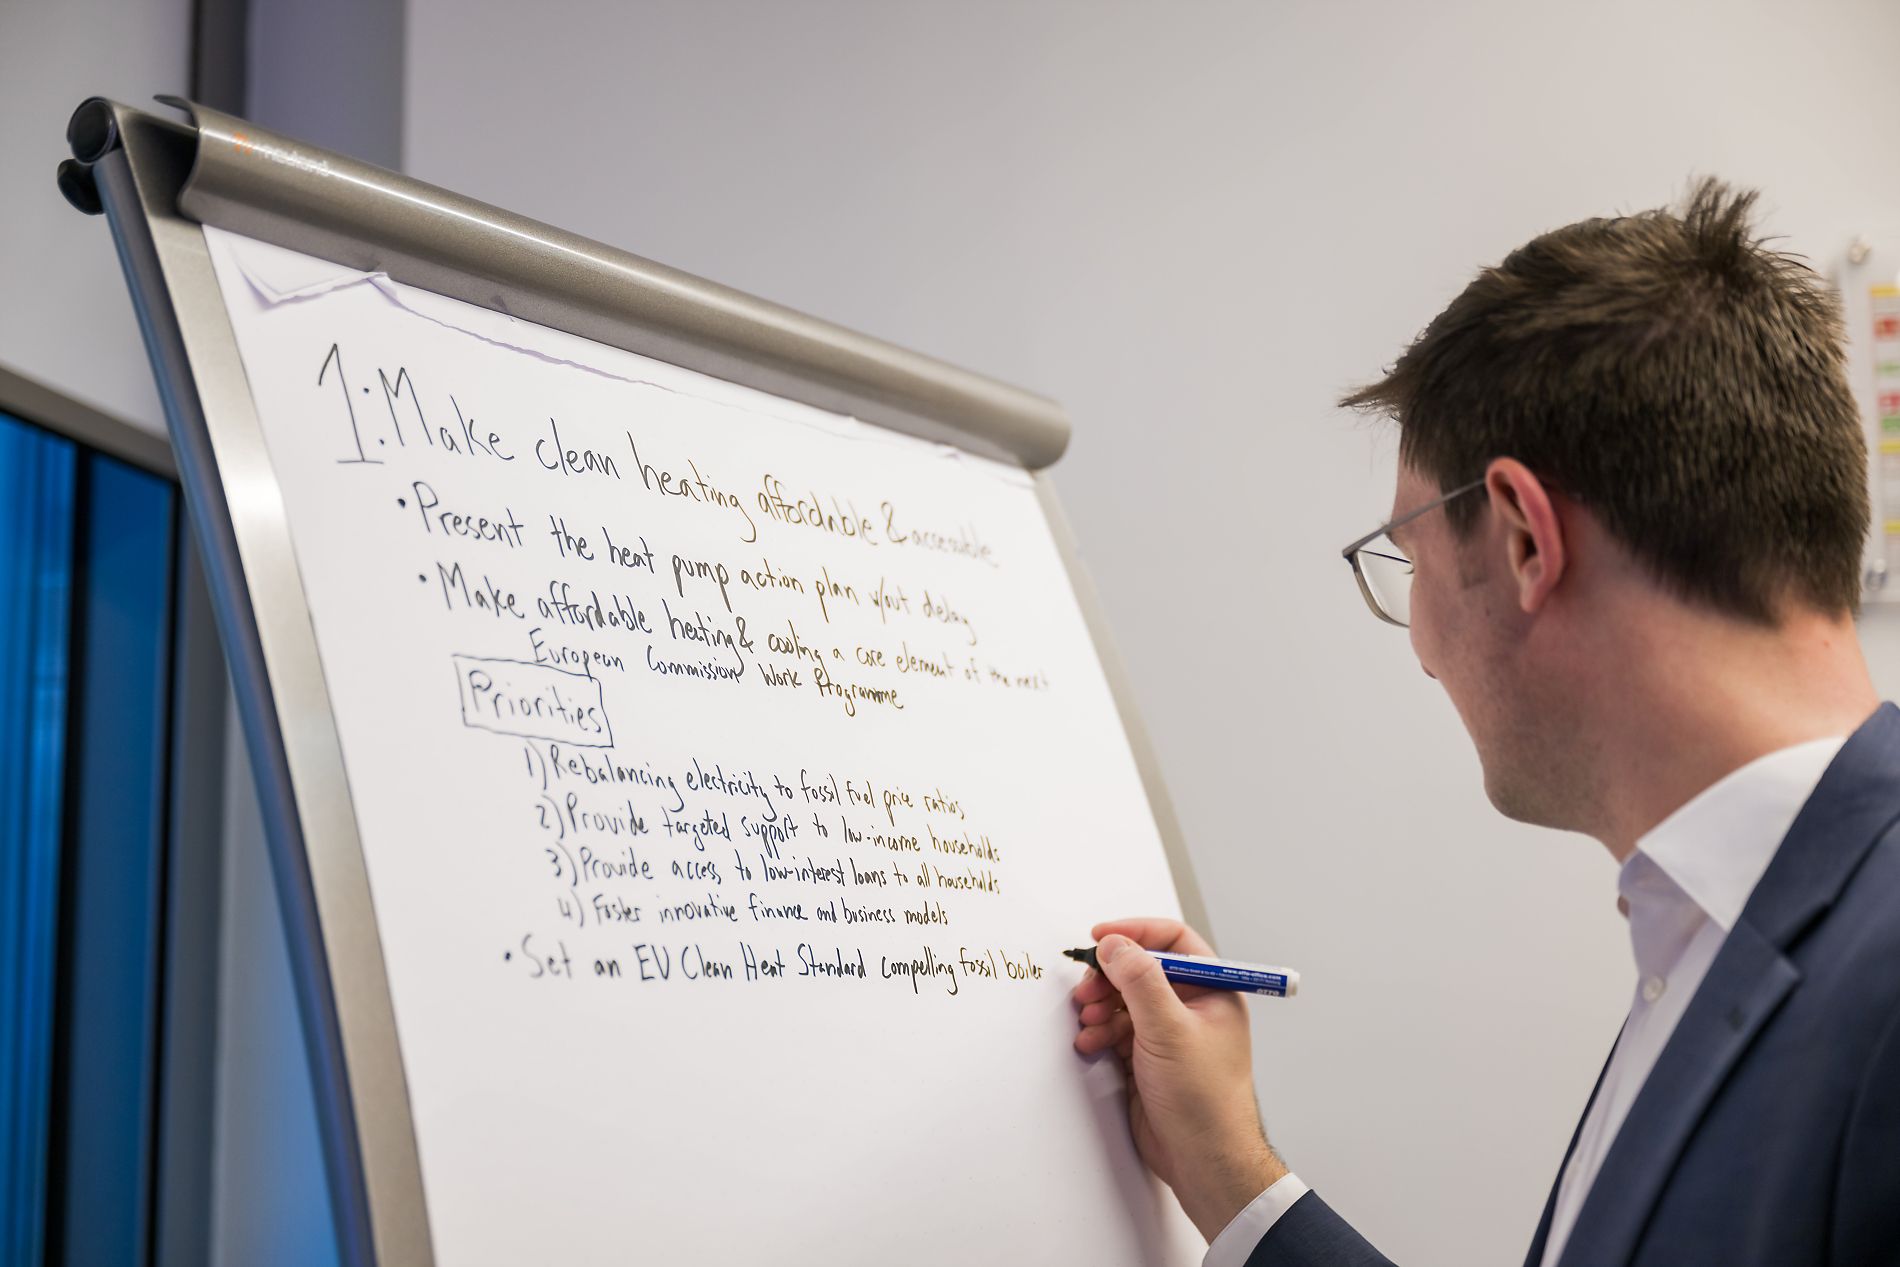 1: Make clean heating affordable & accessible
• Present the heat pump action plan w/out delay
• Make affordable heating & cooling a core element of the next
European Commission Work Programme
Priorities
1) Rebalancing electricity to fossil fuel price ratios
2) Provide targeted support to low-income households
3) Provide access to low-interest loans to all households
4) Foster innovative finance and business models
• Set an EU Clean Heat Standard compelling fossil boiler